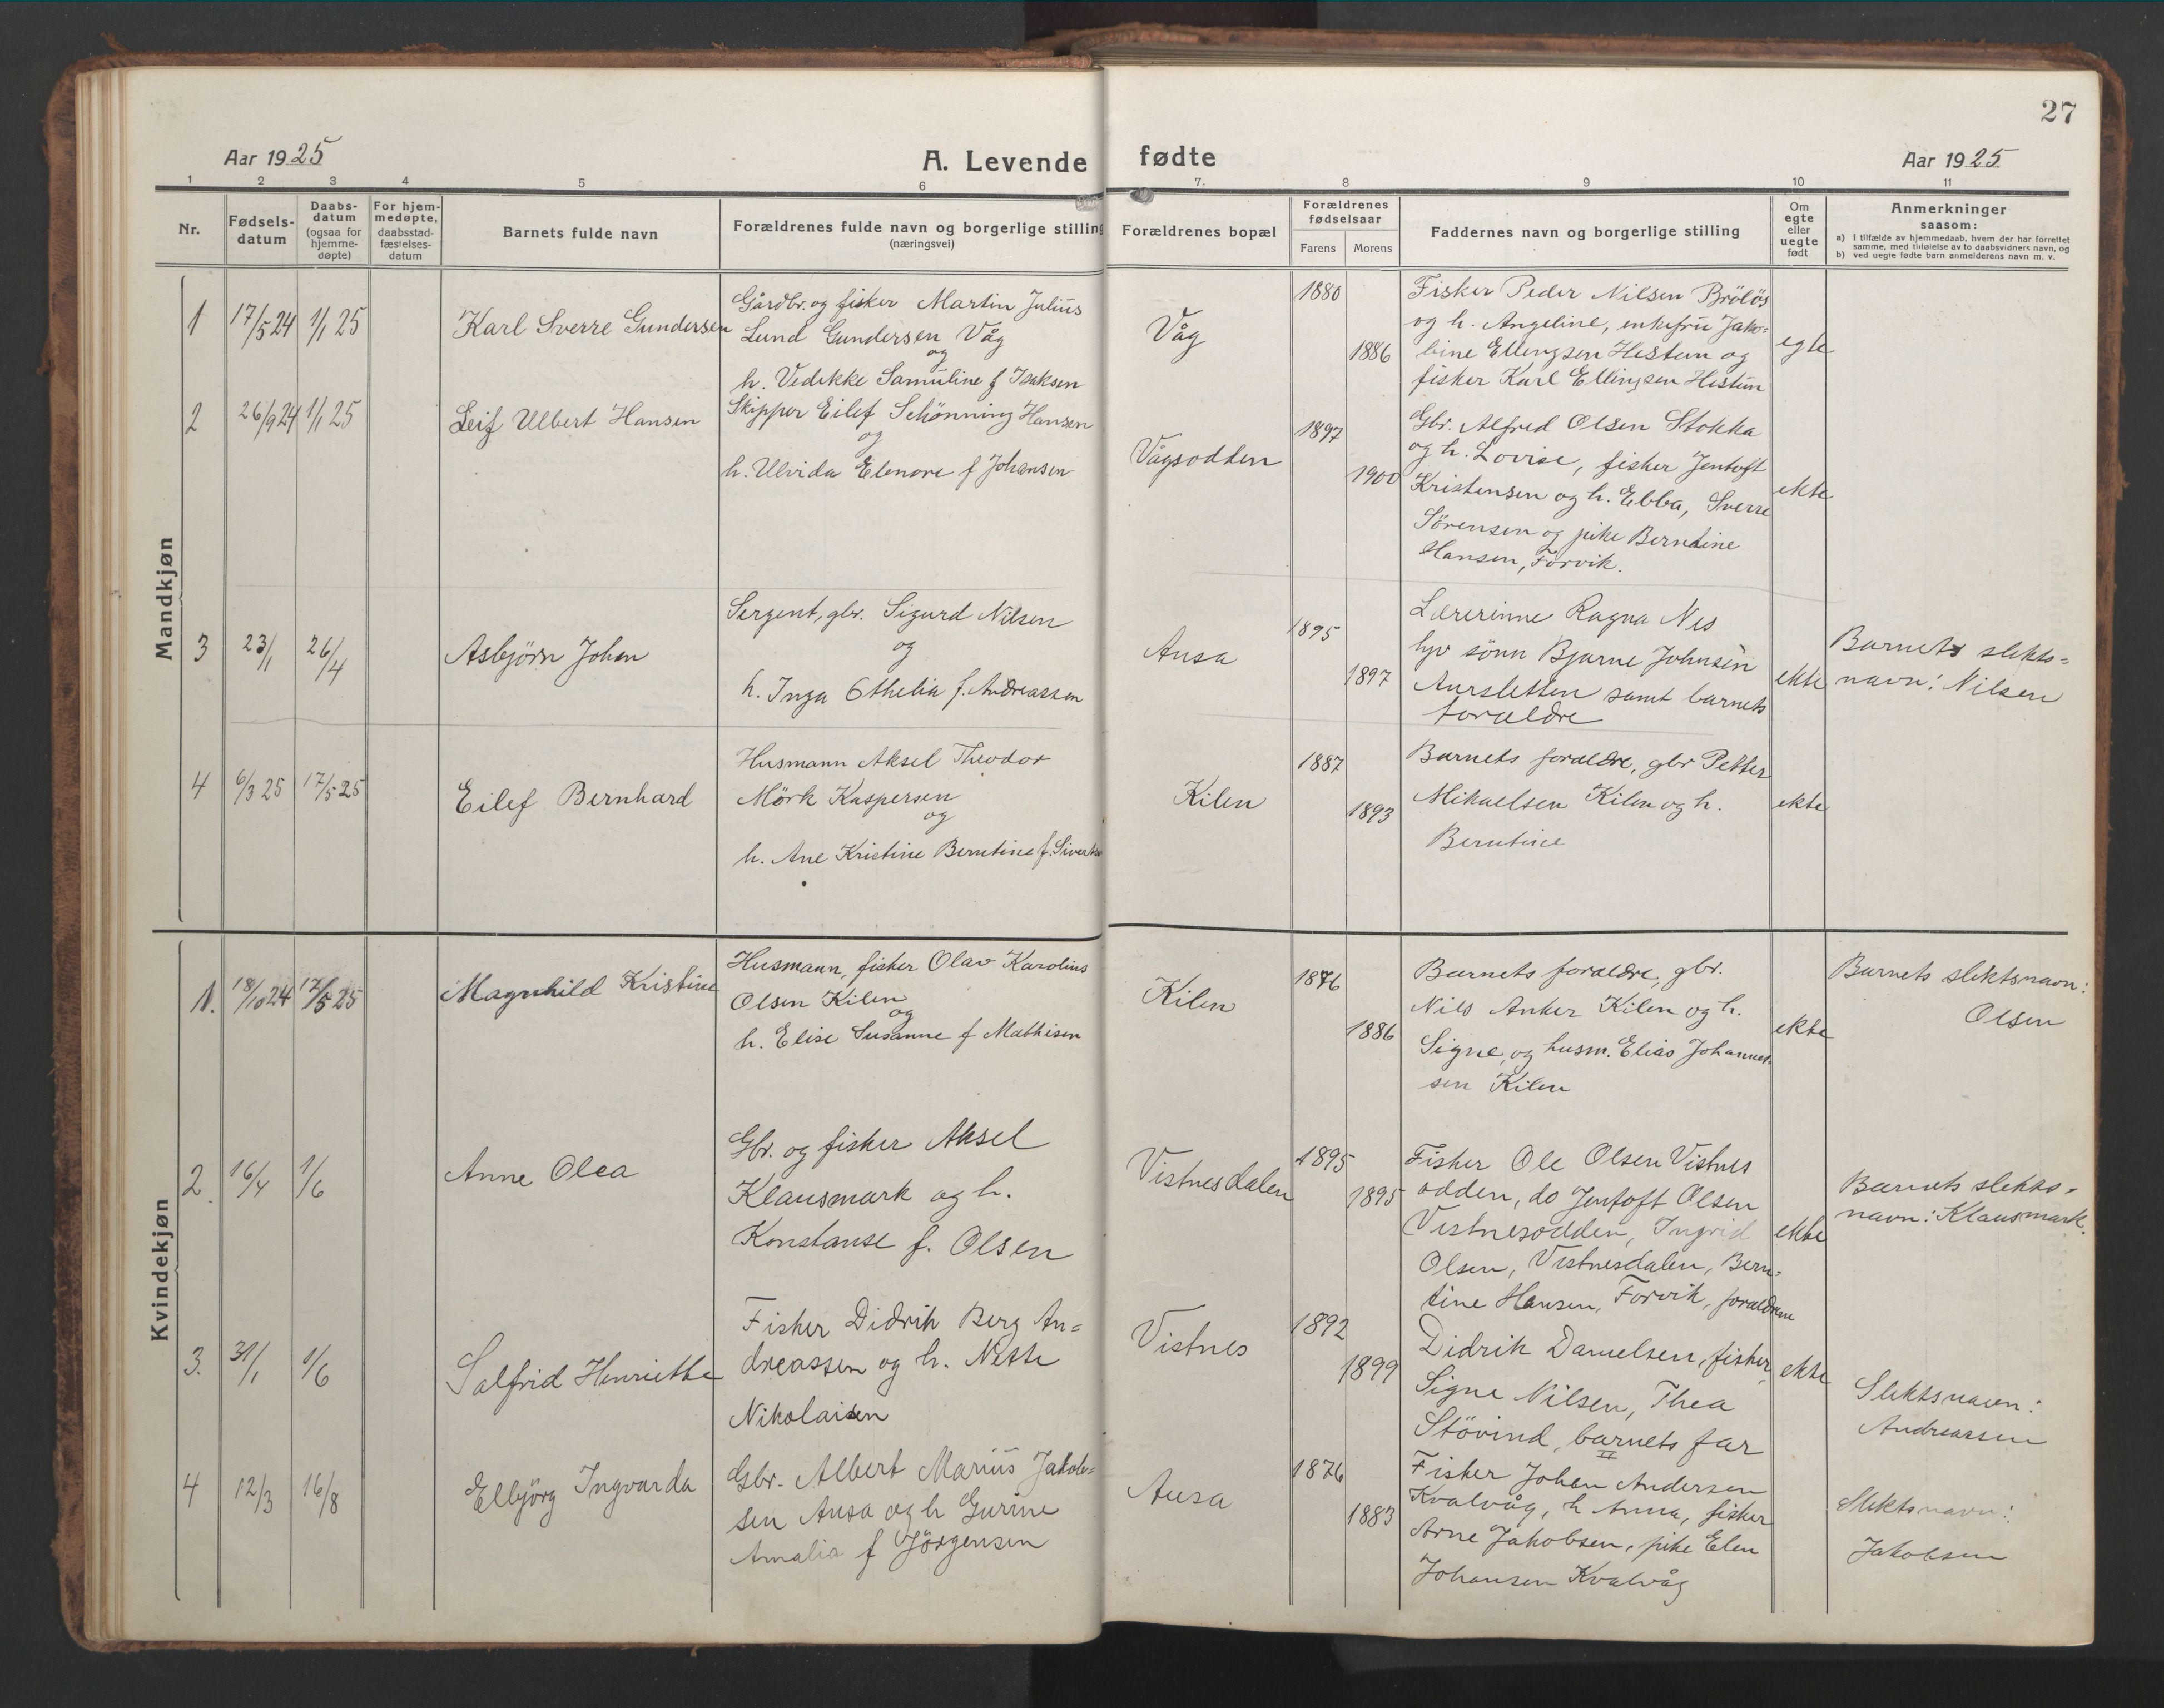 27
Aar 1925
A. Levende fødte
Aar 1925
1 2 3 4 5 6 7. 8 9 10 11
Nr.
Fødsels-
datum
Daabs-
datum
(ogsaa for
hjemme-
døpte)
For hjem-
medøpte,
daabsstad-
fæstelses-
datum
Barnets fulde navn
Forældrenes fulde navn og borgerlige stilling
(næringsvei)
Forældrenes bopæl
Forældrenes
fødselsaar
Farens Morens
Faddernes navn og borgerlige stilling
Om
egte
eller
uegte
født
Anmerkninger
saasom:
a) I tilfælde av hjemmedaab, hvem der har forrettet
samme, med tilføielse av to daabsvidners navn, og
b) ved uegte fødte barn anmelderens navn m. v.
Mandkjøn
1 17/5 24 1/1 25
Karl Sverre Gundersen
Gårdbr. og fisker Martin Julius
Lund Gundersen Våg
og
h. Vedikke Samuline f Isaksen
Våg
1880
1886
Fisker Peder Nilsen Brölös
og h. Angeline, enkefru Jako-
bine Ellingsen Hestun og
fisker Karl Ellingsen Hestun
egte
2 26/9 24 1/1 25
Leif Ulbert Hansen
Skipper Eilef Schönning Hansen
og
h. Ulvida Elenore f Johansen
Vågsodden
1897
1900
Gbr. Alfred Olsen Stokka
og h. Lovise, fisker Jentoft
Kristensen og h. Ebba, Sverre
Sörensen og pike Berntine
Hansen, Forvik.
ekte
3 23/1 26/4
Asbjörn Johan
Sergent, gbr. Sigurd Nilsen
og
h. Inga Othelia f. Andreassen
Ausa
1895
1897
Lærerinne Ragna Nes
sönn Bjarne Johnsen
Aursletten samt barnets
foreldre
ekte
Barnets slekts-
navn: Nilsen
4 6/3 25 17/5 25
Eilef Bernhard
Husmann Aksel Theodor
Mörk Kaspersen
og
h. Ane Kristine Berntine f. Sivertsen
Kilen
1887
1893
Barnets foreldre, gbr Petter
Mikaelsen Kilen og h.
Berntine
ekte
Kvindekjøn
1. 18/10 24 17/5 25
Magnhild Kristine
Husmann, fisker Olav Karolius
Olsen Kilen
og
h. Elise Susanne f Mathisen
Kilen
1876
1886
Barnets foreldre, gbr.
Nils Anker Kilen og h.
Signe, og husm. Elias Johannes-
sen Kilen
ekte
Barnets slektsnavn:
Olsen
2. 16/4 1/6
Anne Olea
Gbr. og fisker Aksel
Klausmark og h.
Konstanse f. Olsen
Vistnesdalen
1895
1895
Fisker Ole Olsen Vistnes
odden, do Jentoft Olsen
Vistnesodden, Ingrid
Olsen, Vistnesdalen, Bern-
tine Hansen, Forvik, foreldrene
ekte
Barnets slekts-
navn: Klausmark.
3. 31/1 1/6
Salfrid Henriette
Fisker Didrik Berg An-
dreassen og h. Nette
Nikolaisen
Vistnes
1892
1899
Didrik Danielsen, fisker,
Signe Nilsen, Thea
Stövind, barnets far
ekte
Slektsnavn:
Andreassen
4 12/3 16/8
Elbjörg Ingvarda
Gbr. Albert Marius Jakob-
sen Ausa og h Gurine
Amalia f Jörgensen
Ausa
1876
1883
Fisker Johan Andersen
Kvalvåg, h Anna, fisker
Arne Jakobsen, pike Elen
Johansen Kvalvåg
Slektsnavn:
Jakobsen